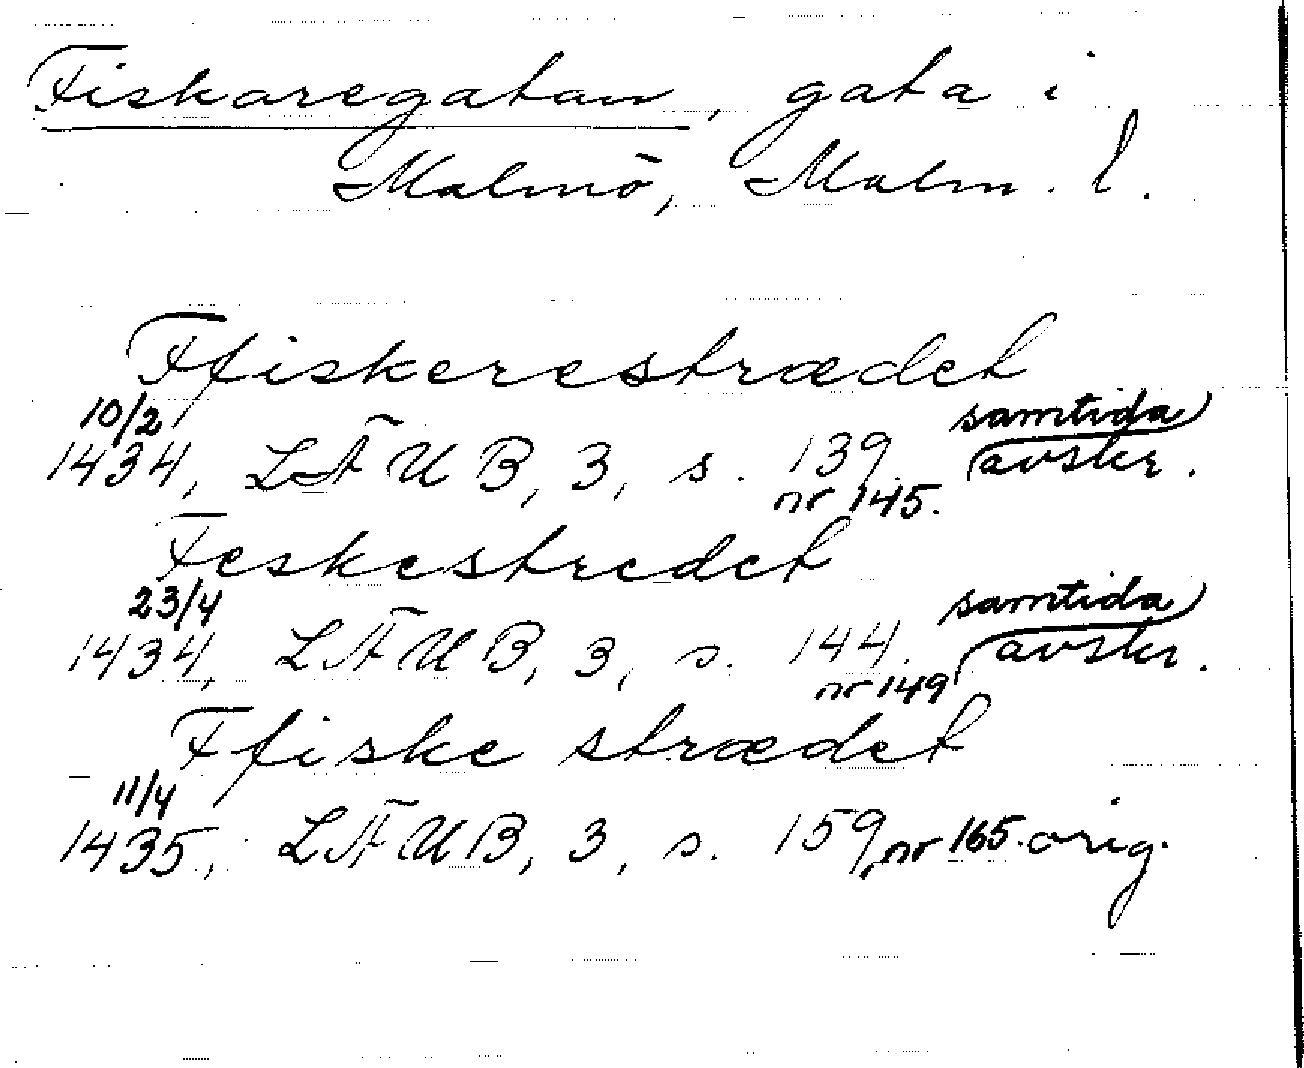 Fiskaregatan, gata i
Malmö, Malm. l.
Ffiskerestrædet
10/2 samtida
1434, LÄUB, 3, s. 139. avskr.
nr 145.
Feskestredet
23/4 samtida
1434, LÄUB, 3, s. 144. avskr.
nr 149
Ffiske strædet
11/4
1435, LÄUB, 3, s. 159, nr 165. orig.